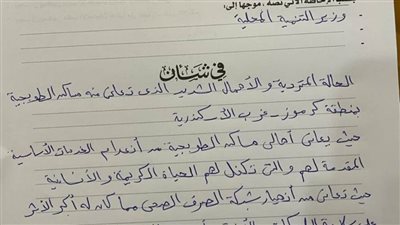 الإحاطة الآتي نصه ، موجها إلى :
- وزير التنمية المحلية
-
-
في شأن
الحالة المتردية و الأهمال الشديد الذى تعانى منه مساكن الطوبجية
بمنطقة كرموز - غرب الأسكندرية
حيث يعانى أهالى مساكن الطوبجية من أنعدام الخدمات الأساسية
المقدمة لهم و التى تكفل لهم الحياة الكريمة و الأنسانية
حيث تعانى من أنهيار شبكة الصرف الصحى مما كان له أكبر الأثر